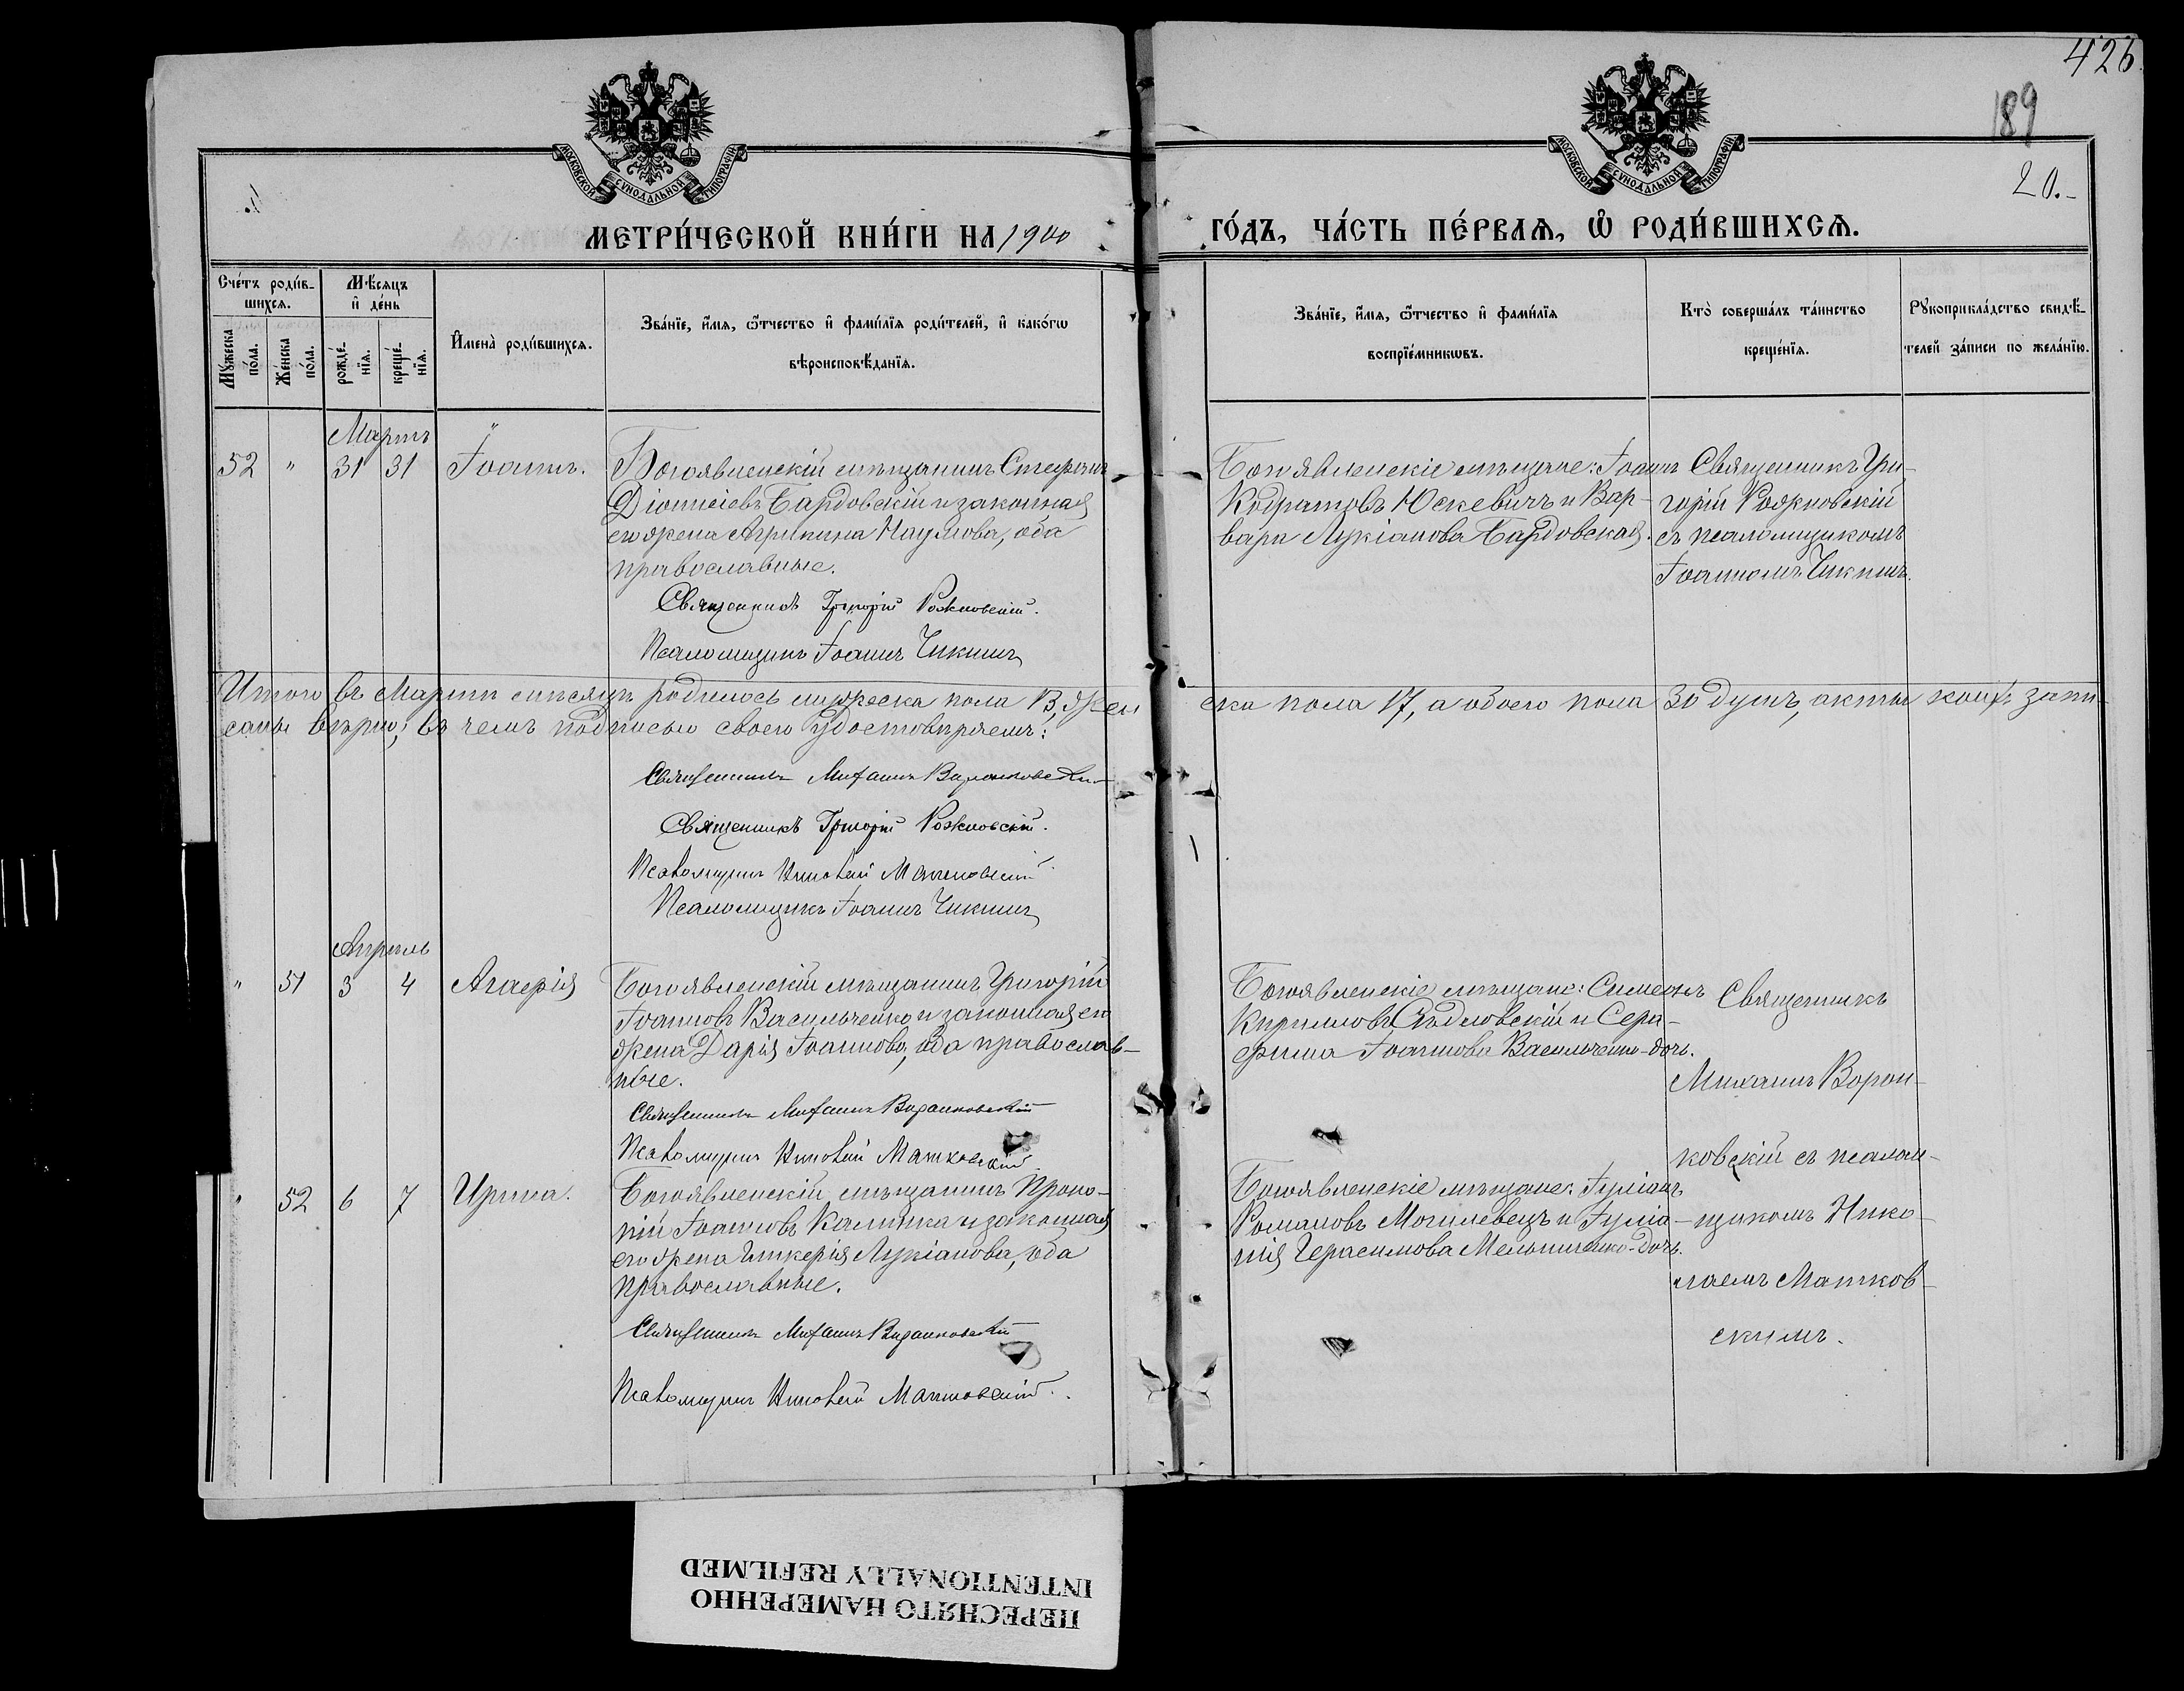 426
189
20.
МОСКОВСКОЙ СѴНОДАЛЬНОЙ ТИПОГРАФІИ
МОСКОВСКОЙ СѴНОДАЛЬНОЙ ТИПОГРАФІИ
МЕТРИ́ЧЕСКОЙ КНИ́ГИ НА 1900
ГО́ДЪ, ЧА́СТЬ ПЕ́РВАѦ, Ѽ РОДИ́ВШИХСѦ.
Сче́тъ роди́вшихсѧ.
Мѣ́сѧцъ и҆ де́нь
Мꙋ́жеска по́ла.
Же́нска по́ла.
рожде́нїѧ.
креще́нїѧ.
И҆мена̀ роди́вшихсѧ.
Зва́нїе, и҆́мѧ, ѻ҆́тчество и҆ фамѵ́лїѧ роди́телей, и҆ како́гѡ
вѣроисповѣ́данїѧ.
Зва́нїе, и҆́мѧ, ѻ҆́тчество и҆ фамѵ́лїѧ
воспрїе́мникѡвъ.
Кто̀ соверша́лъ та́инство
креще́нїѧ.
Рꙋкоприкла́дство свидѣ́-
телей за́писи по жела́нїю.
Мартъ
52 " 31 31 Іоаннъ.
Богоявленскій мѣщанинъ Стефанъ
Діонисіевъ Бардовскій и законная
его жена Агрипина Наумова, оба
православные.
Священникъ Григорій Рожновскій.
Псаломщикъ Іоаннъ Чикинъ
Богоявленскіе мѣщане: Іоаннъ
Кодратовъ Юскевичъ и Вар-
вара Лукіанова Бардовская.
Священникъ Гри-
горій Рожновскій
съ псаломщикомъ
Іоанномъ Чикинъ.
Итого въ Мартѣ мѣсяцѣ родилось мужеска пола 13, жен
ска пола 17, а обоего пола 30 душъ, акты коихъ запи-
саны вѣрно, въ чемъ подписью своею удостовѣряемъ:
Священникъ Михаилъ Воронковскій
Священникъ Григорій Рожновскій.
Псаломщикъ Николай Матковскій
Псаломщикъ Іоаннъ Чикинъ
Апрѣль
" 51 3 4 Агафія
Богоявленскій мѣщанинъ Григорій
Іоанновъ Васильченко и законная его
жена Дарія Іоаннова, оба православ-
ные.
Священникъ Михаилъ Воронковскій
Псаломщикъ Николай Матковскій
Богоявленскіе мѣщане: Симеонъ
Кирилловъ Сѣдловскій и Сера-
фима Іоаннова Васильченко-дочь.
Священникъ
Михаилъ Ворон-
ковскій съ псалом-
щикомъ Нико-
лаемъ Матков-
скимъ.
" 52 6 7 Ирина.
Богоявленскій мѣщанинъ Проко-
пій Іоанновъ Калинка и законная
его жена Гликерія Лукіанова, оба
православные.
Священникъ Михаилъ Воронковскій
Псаломщикъ Николай Матковскій.
Богоявленскіе мѣщане: Іуліанъ
Романовъ Могилевецъ и Іуліа-
нія Герасимова Мельниченко-дочь.
ПЕРЕСНЯТО НАМЕРЕННО
INTENTIONALLY REFILMED